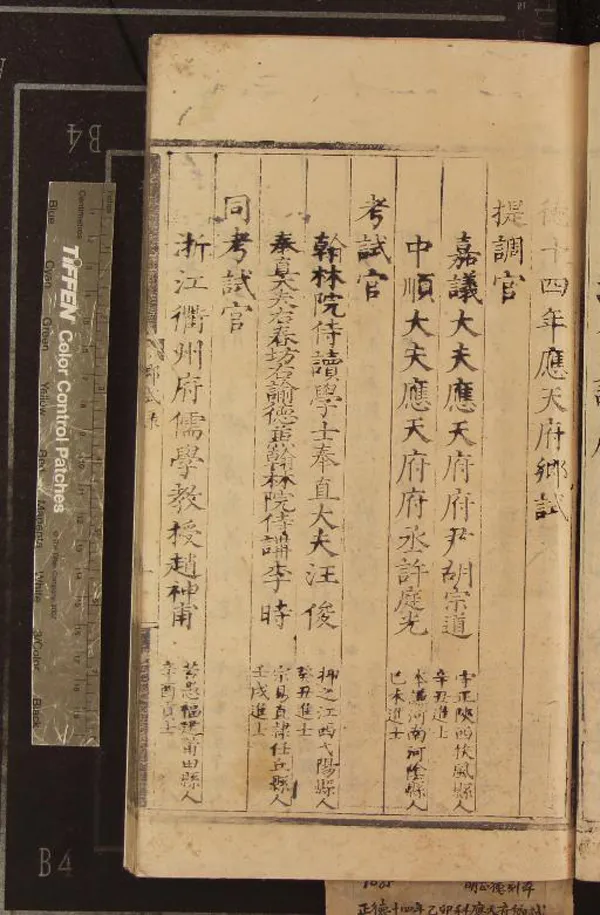 德十四年應天府鄉試
提調官
嘉議大夫應天府府尹胡宗道
守正陝西扶風縣人
辛丑進士
中順大夫應天府府丞許庭光
河南河陰縣人
己未進士
考試官
翰林院侍讀學士奉直大夫汪俊
抑之江西弋陽縣人
癸丑進士
奉直大夫右春坊右諭德兼翰林院侍講李時
宗易直隸任丘縣人
壬戌進士
同考試官
浙江衢州府儒學教授趙神甫
福建莆田縣人
辛酉貢士
鄉試錄
TIFFEN Color Control Patches
Centimetres
Blue
Cyan
Green
Yellow
Red
Magenta
White
3/Color
Black
B4
B4
明正德刻本
正德十四年乙卯科應天府鄉試